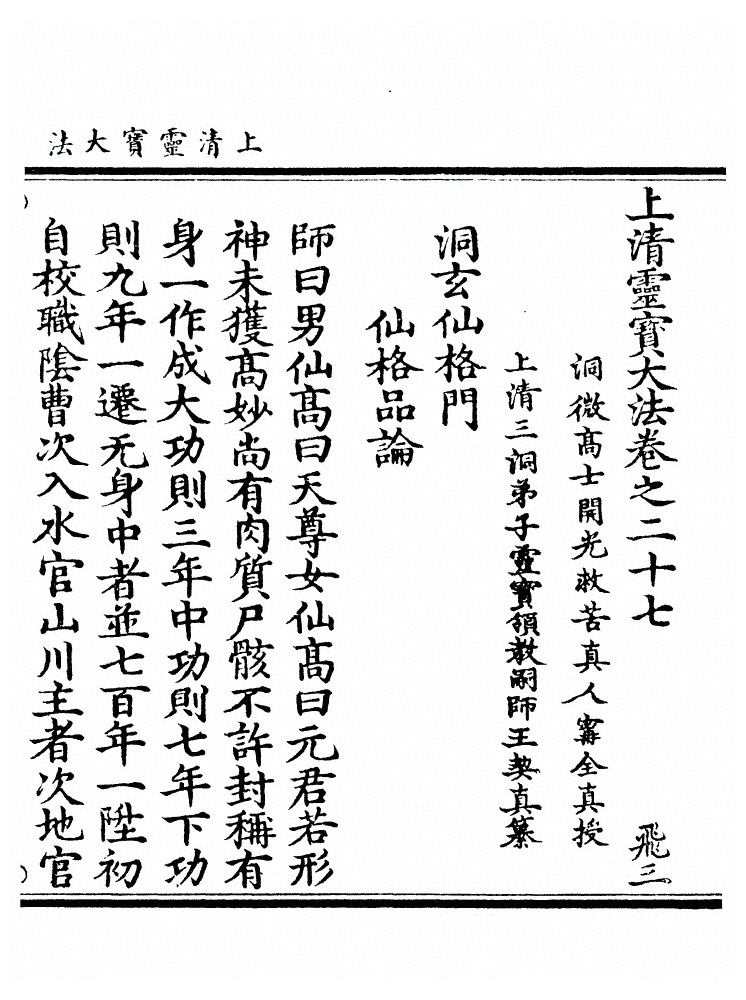 上清靈寶大法
上清靈寶大法卷之二十七　飛三
洞微高士開光救苦真人甯全真授
上清三洞弟子靈寶領教嗣師王契真纂
洞玄仙格門
仙格品論
師曰男仙髙曰天尊女仙髙曰元君若形
神未獲髙妙尚有肉質尸骸不許封稱有
身一作成大功則三年中功則七年下功
則九年一遷无身中者並七百年一陞初
自校職陰曹次入水官山川主者次地官